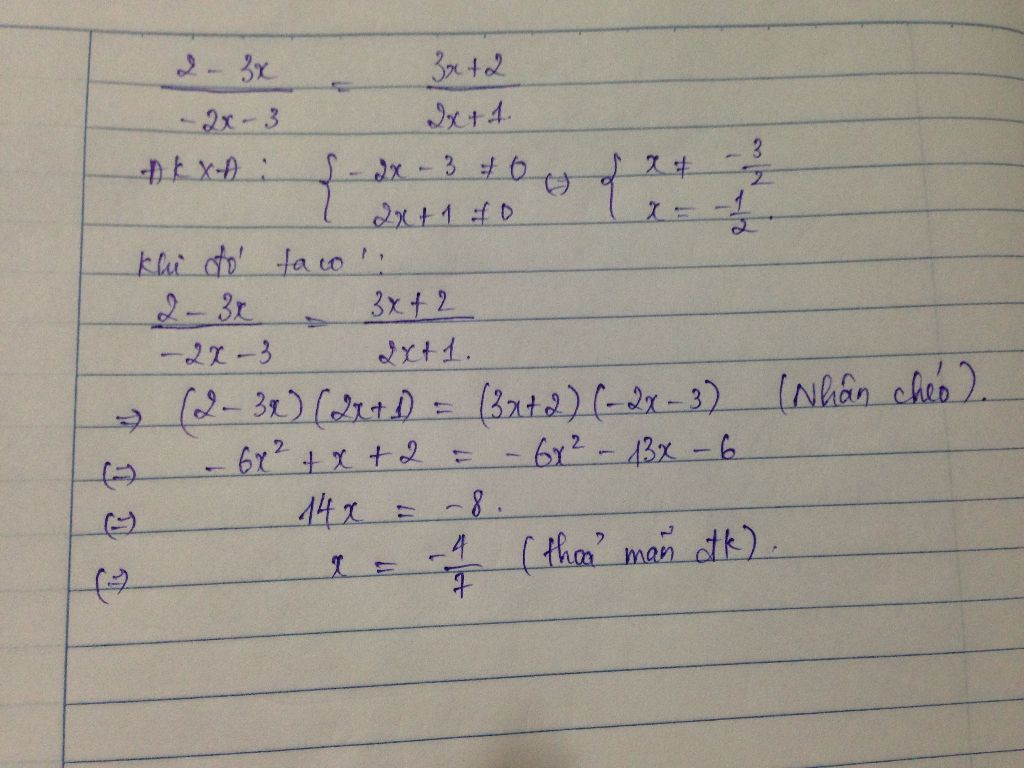 2 - 3x / -2x - 3 = 3x + 2 / 2x + 1.
ĐKXĐ: { -2x - 3 ≠ 0 (=) { x ≠ -3/2
2x + 1 ≠ 0 x = -1/2.
Khi đó ta có:
2 - 3x / -2x - 3 = 3x + 2 / 2x + 1.
=> (2 - 3x)(2x + 1) = (3x + 2)(-2x - 3) (Nhân chéo).
(=) - 6x² + x + 2 = - 6x² - 13x - 6
(=) 14x = -8.
(=) x = -4/7 (thoả mãn đk).